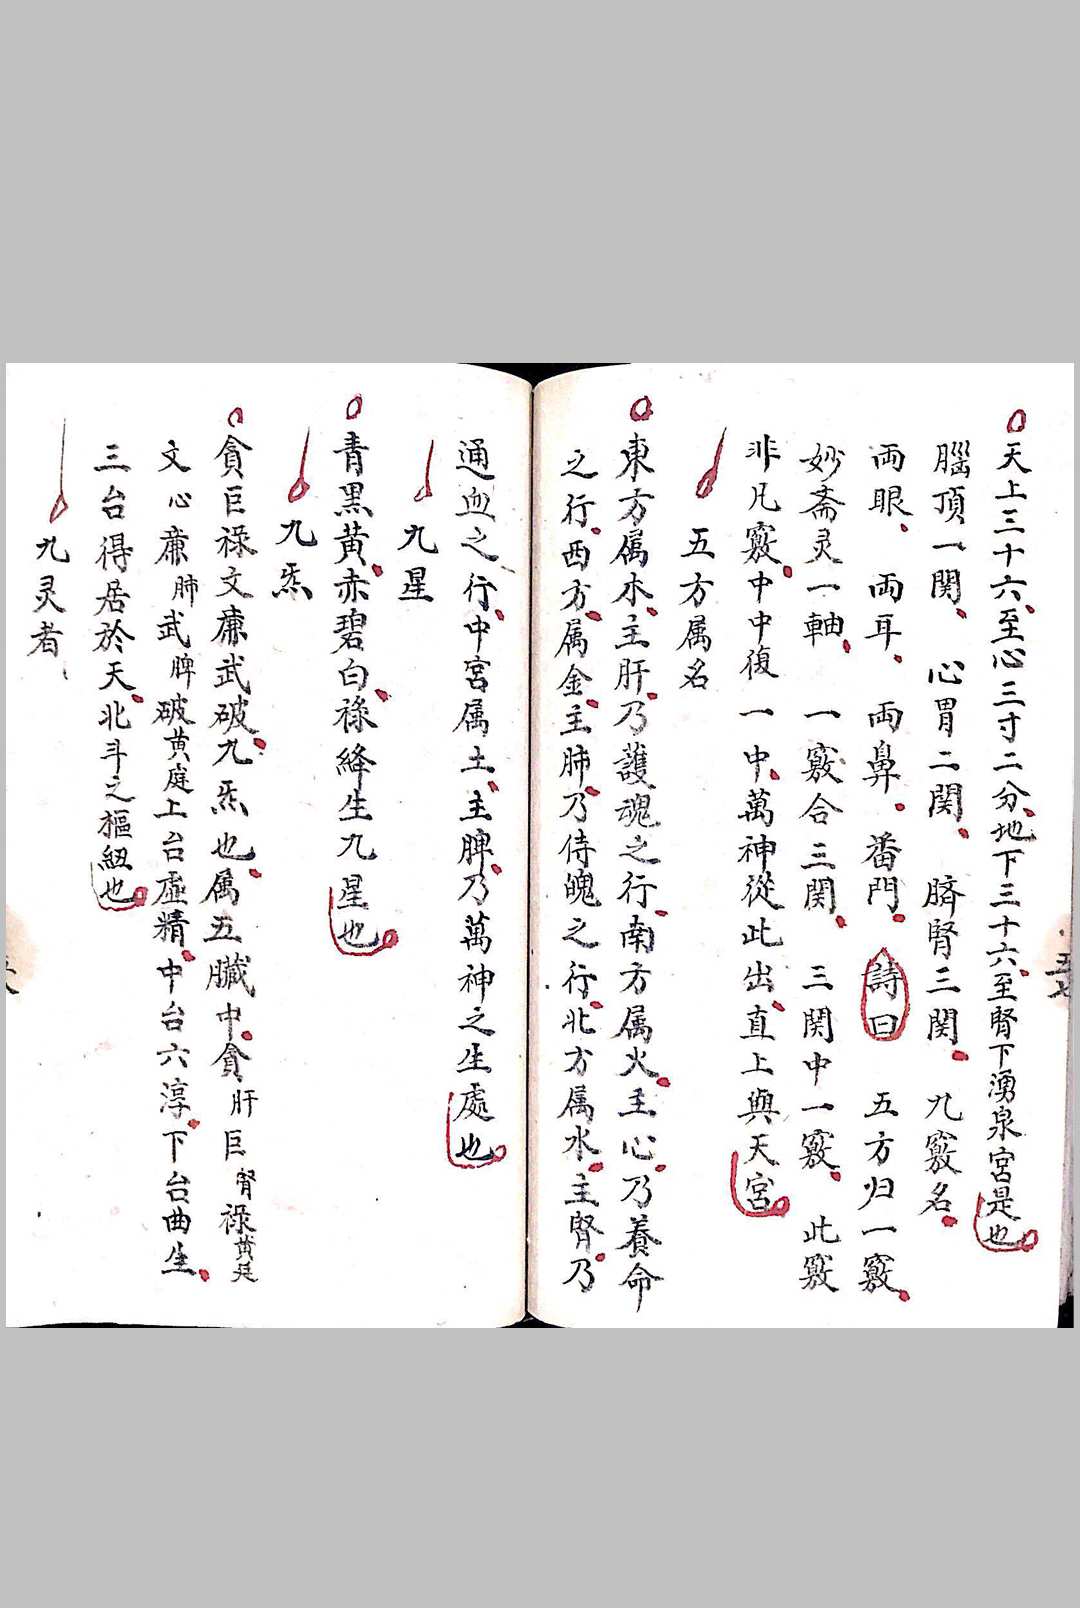 天上三十六至心三寸二分地下三十六至腎下湧泉宮是也
腦頂一関 心胃二関 臍腎三関 九竅名
両眼 両耳 両鼻 番門 詩曰 五方归一竅
妙斎灵一軸 一竅合三関 三関中一竅 此竅
非凡竅中中復一中萬神從此出直上與天宮
五方属名
東方属木主肝乃護魂之行南方属火主心乃養命
之行西方属金主肺乃侍魄之行北方属水主腎乃
通血之行中宮属土主脾乃萬神之生處也
九星
青黑黄赤碧白祿絳生九星也
九炁
貪巨祿文廉武破九炁也属五臟中貪肝巨腎祿黄廷
文心廉肺武脾破黄庭上台虛精中台六淳下台曲生
三台得居於天北斗之樞紐也
九灵者